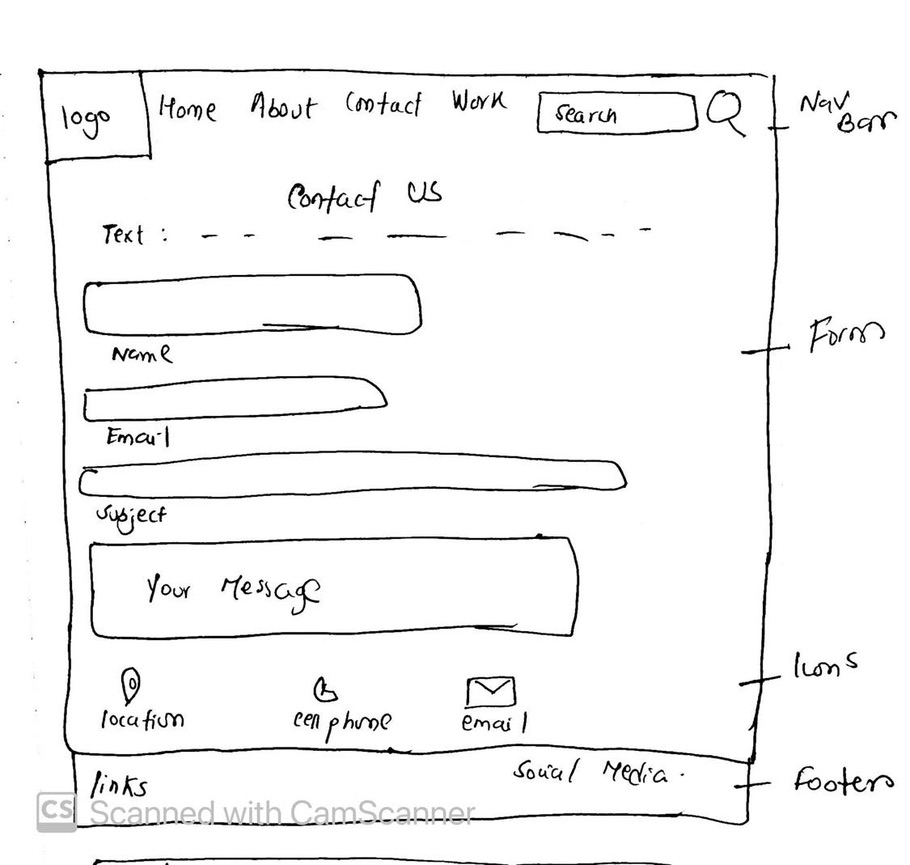 logo Home About Contact Work Search
Nav
Bar
Contact Us
Text :
Form
Name
Email
Subject
Your Message
Icons
location cell phone email
links Social Media.
Footers
CS Scanned with CamScanner